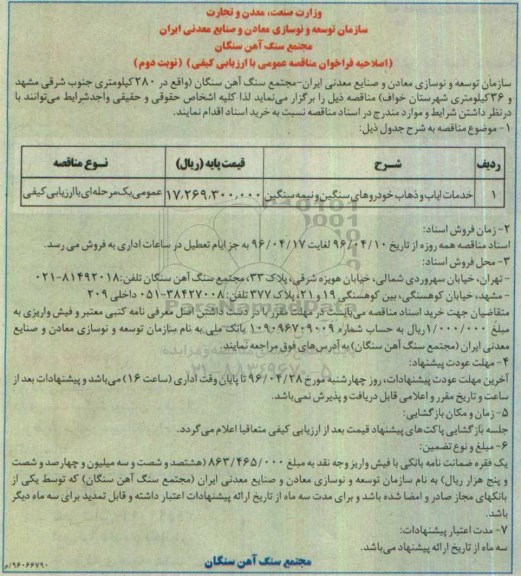 وزارت صنعت، معدن و تجارت
سازمان توسعه و نوسازی معادن و صنایع معدنی ایران
مجتمع سنگ آهن سنگان
(اصلاحیه فراخوان مناقصه عمومی با ارزیابی کیفی) (نوبت دوم)
سازمان توسعه و نوسازی معادن و صنایع معدنی ایران-مجتمع سنگ آهن سنگان (واقع در ۲۸۰کیلومتری جنوب شرقی مشهد
و ۳۶کیلومتری شهرستان خواف) مناقصه ذیل را برگزار می‌نماید لذا کلیه اشخاص حقوقی و حقیقی واجدشرایط می‌توانند با
درنظر داشتن شرایط و موارد مندرج در اسناد مناقصه نسبت به خرید اسناد اقدام نمایند.
۱- موضوع مناقصه به شرح جدول ذیل:
ردیف شــرح قیمت پایه (ریال) نــوع مناقصه
۱ خدمات ایاب و ذهاب خودروهای سنگین و نیمه سنگین ۱۷،۲۶۹،۳۰۰،۰۰۰ عمومی یک مرحله‌ای با ارزیابی کیفی
۲- زمان فروش اسناد:
اسناد مناقصه همه روزه از تاریخ ۹۶/۰۴/۱۰ لغایت ۹۶/۰۴/۱۷ به جز ایام تعطیل در ساعات اداری به فروش می رسد.
۳- محل فروش اسناد:
- تهران، خیابان سهروردی شمالی، خیابان هویزه شرقی، پلاک ۳۳، مجتمع سنگ آهن سنگان تلفن: ۸۱۴۹۲۰۱۸-۰۲۱
- مشهد، خیابان کوهسنگی، بین کوهسنگی ۱۹ و ۲۱، پلاک ۳۷۷ تلفن: ۳۸۴۲۷۰۰۸-۰۵۱ داخلی ۲۰۹
متقاضیان جهت خرید اسناد مناقصه می‌بایست در مهلت مقرر با در دست داشتن اصل معرفی نامه کتبی معتبر و فیش واریزی به
مبلغ ۱/۰۰۰/۰۰۰ریال به حساب شماره ۹۰۰۹۶۷۰۹۰۰۹-۱ بانک ملی به نام سازمان توسعه و نوسازی معادن و صنایع
معدنی ایران (مجتمع سنگ آهن سنگان) به آدرس‌های فوق مراجعه نمایند.
۴- مهلت عودت پیشنهاد:
آخرین مهلت عودت پیشنهادات، روز چهارشنبه مورخ ۹۶/۰۴/۲۸ تا پایان وقت اداری (ساعت ۱۶) می‌باشد و پیشنهادات بعد از
ساعت و تاریخ مقرر و اعلامی قابل دریافت و پذیرش نمی‌باشد.
۵- زمان و مکان بازگشایی:
جلسه بازگشایی پاکت‌های پیشنهاد قیمت بعد از ارزیابی کیفی متعاقبا اعلام می‌گردد.
۶- مبلغ و نوع تضمین:
یک فقره ضمانت نامه بانکی یا فیش واریز وجه نقد به مبلغ ۸۶۳/۴۶۵/۰۰۰ (هشتصد و شصت و سه میلیون و چهارصد و شصت
و پنج هزار ریال) به نام سازمان توسعه و نوسازی معادن و صنایع معدنی ایران (مجتمع سنگ آهن سنگان) که توسط یکی از
بانکهای مجاز صادر و امضا شده باشد و برای مدت سه ماه از تاریخ ارائه پیشنهادات اعتبار داشته و قابل تمدید برای سه ماه دیگر
باشد.
۷- مدت اعتبار پیشنهادات:
سه ماه از تاریخ ارائه پیشنهاد می‌باشد.
مجتمع سنگ آهن سنگان
۹۶۰۶۶۷۹۰/م